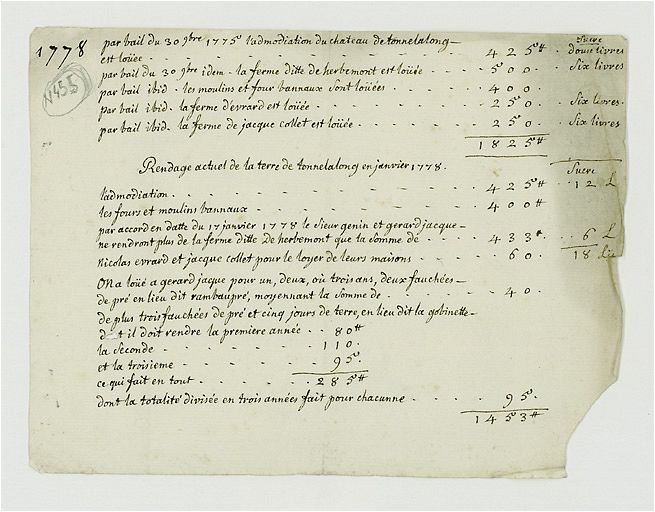 1778
N 455
Sucre
par bail du 30 9bre 1775 ladmodiation du chateau de tonnelalong
est loüée - - - - - 425# - douse livres
par bail du 30 9bre idem - la ferme ditte de herbemont est loüée - - - 500 - - Six livres
par bail ibid - les moulins et four bannaux sont loüées - - - - 400 -
par bail ibid - la ferme d'evrard est loüée - - - - - 250 - - Six livres -
par bail ibid - la ferme de jacque collet est loüée - - - - 250 - - Six livres
1825#
Rendage actuel de la terre de tonnelalong en janvier 1778.
Sucre
l'admodiation - - - - - 425# - - 12 L
les fours et moulins bannaux - - - - - 400#
par accord en datte du 17 janvier 1778 le Sieur genin et gerard jacque
ne rendront plus de la ferme ditte De herbemont que la somme de - - - 433# - - 6 L
Nicolas evrard et jacque collet pour le loyer de leurs maisons - - - 60 - 18
On a loüé a gerard jacque pour un, deux, où trois ans, deux fauchées
de pré en lieu dit rambaupré, moyennant la somme de - - - - 40 -
de plus trois fauchées de pré et cinq jours de terre, en lieu dit la gobinette
d t il doit rendre la premiere année - - 80#
la seconde - - - - - 110 -
et la troisieme - - - - - 95 -
ce qui fait en tout - - - - - 285#
dont la totalité divisée en trois années fait pour chacunne - - - - 95 -
1453#